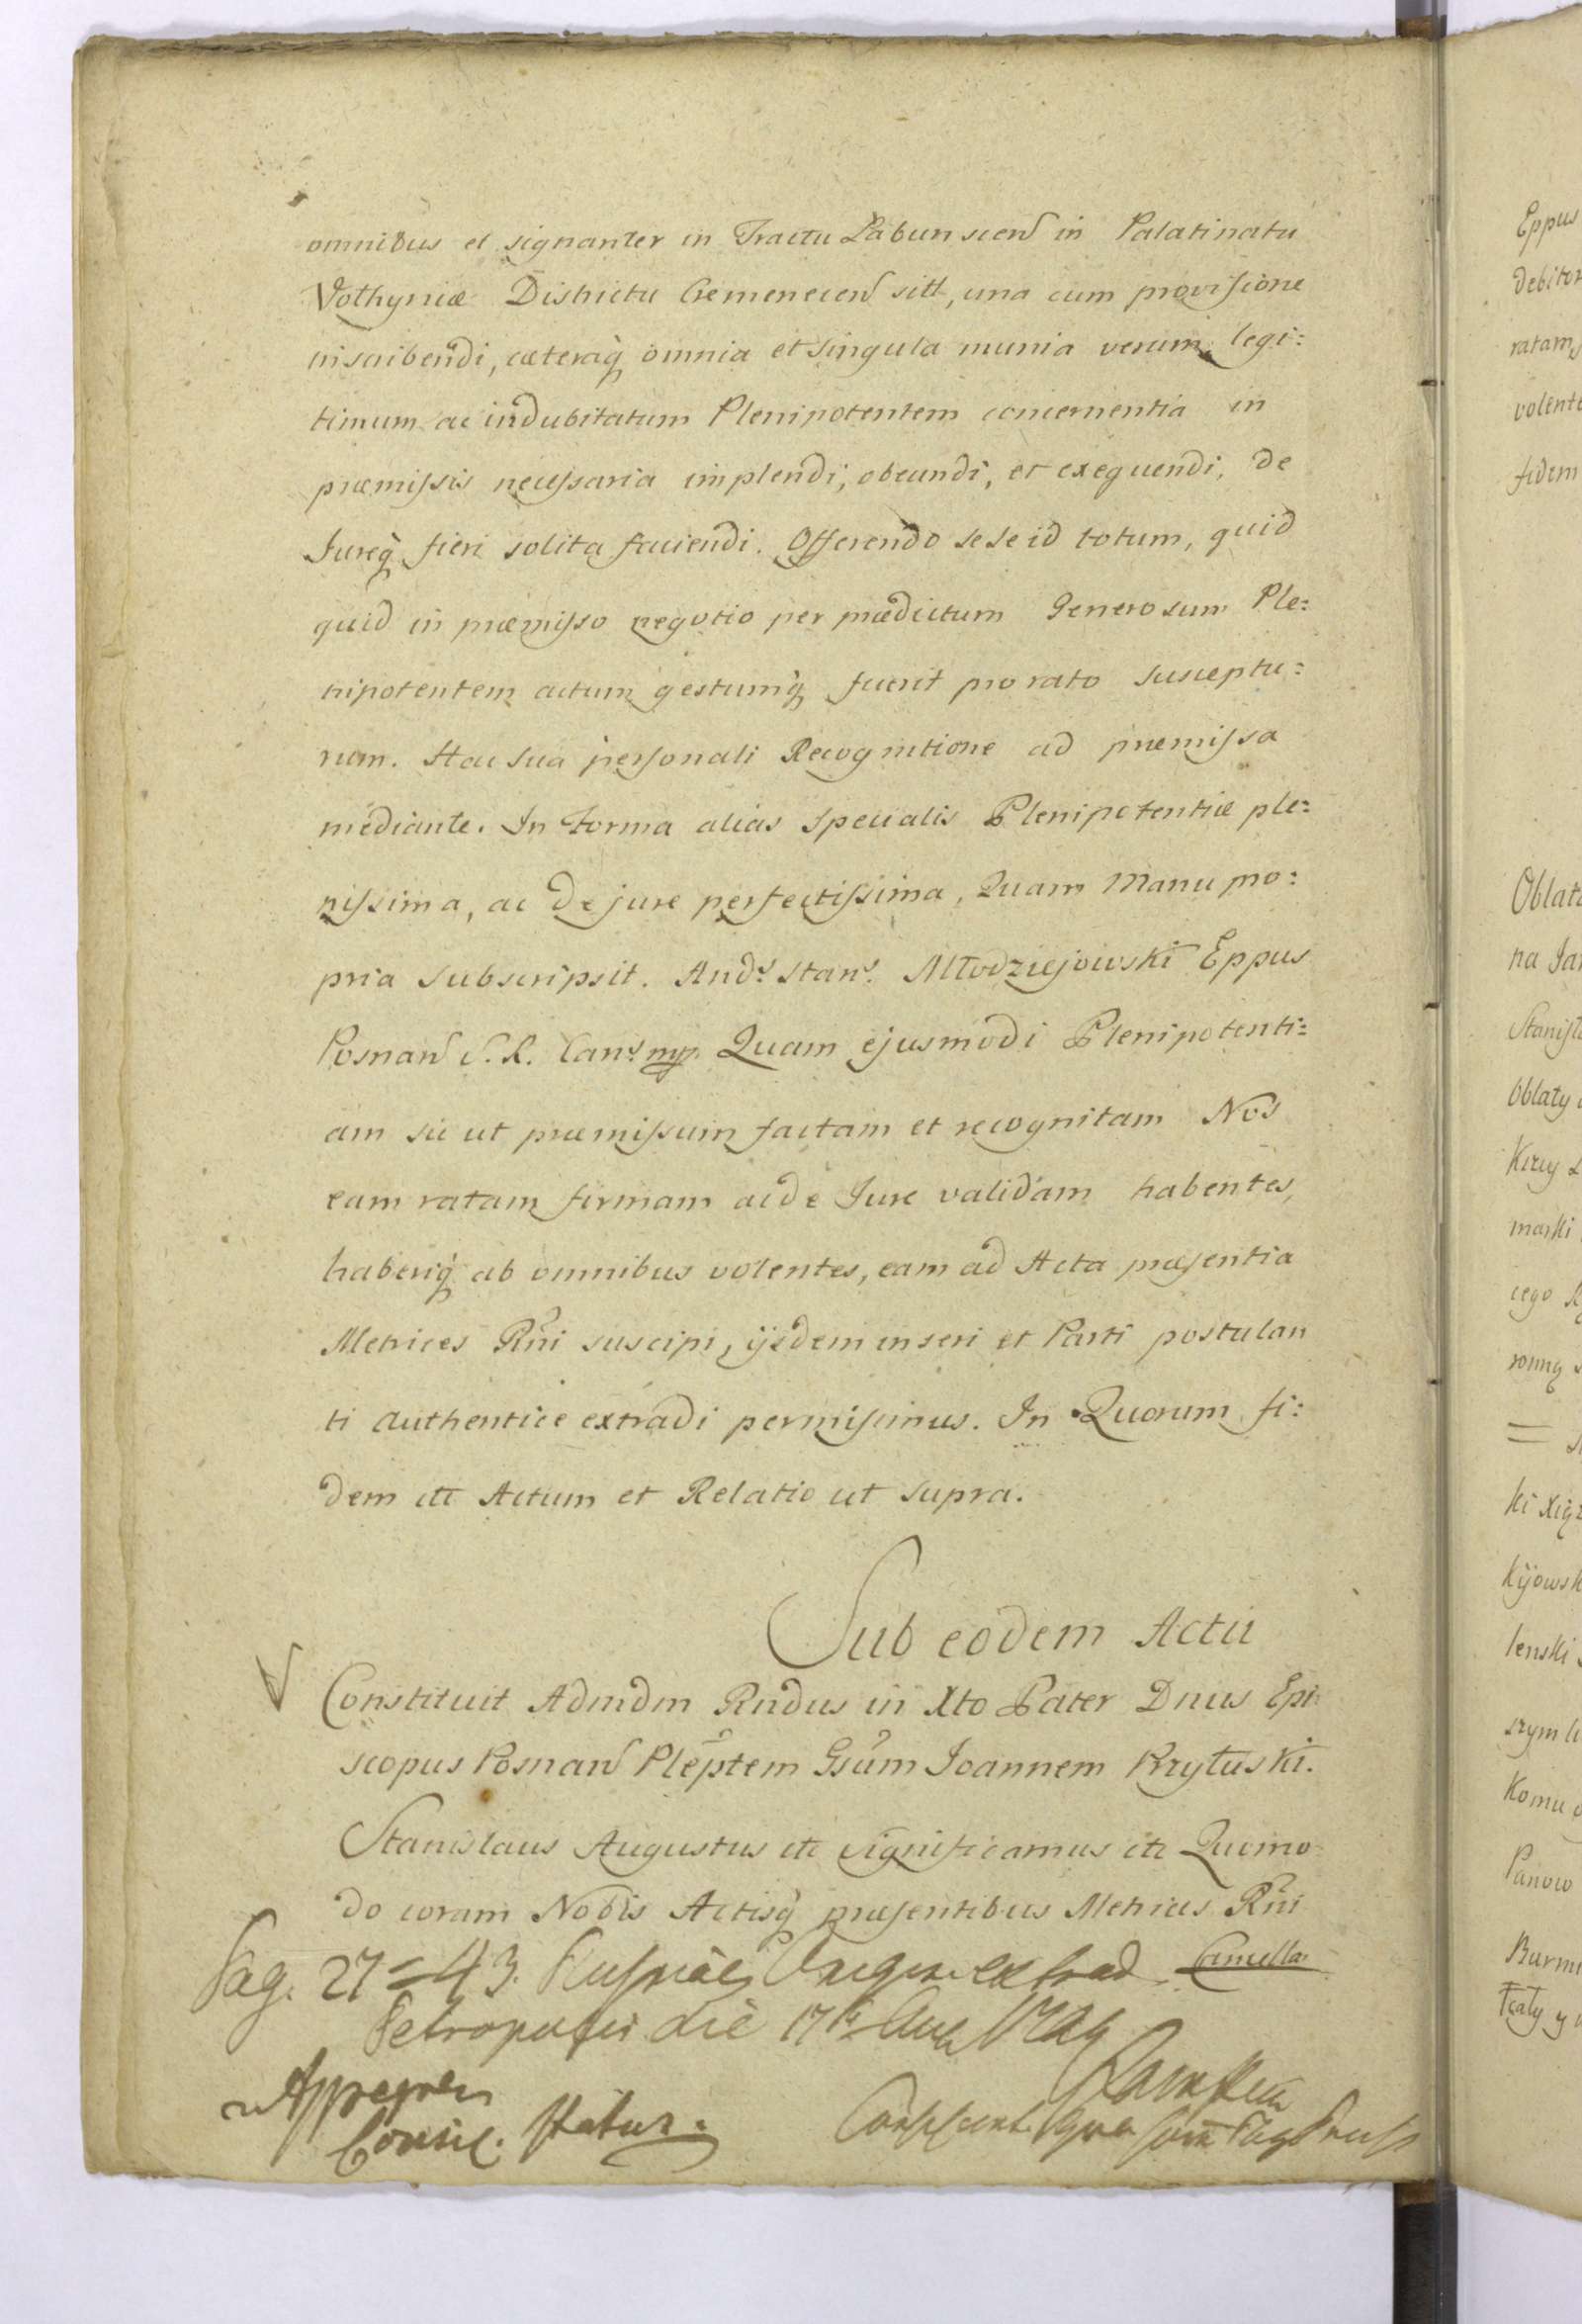 omnibus et signanter in Tractu Łabunscen in Palatinatu
Volhyniæ Districtu Cremenecen sitt, una cum provisione
inscribendi, cæteraq omnia et singula munia verum legi:
timum ac indubitatum Plenipotentem concernentia in
præmissis necessaria implendi, obeundi, et exequendi, de
Jureq fieri solita faciendi. Offerendo sese id totum, quid
quid in præmisso negotio per prædictum Generosum Ple:
nipotentem actum gestumq fuerit pro rato susceptu:
rum. Hac sua personali Recognitione ad præmissa
mediante. In Forma alias specialis Plenipotentiæ ple:
nissima, ac de jure perfectissima, Quam Manu pro:
pria subscripsit. Andr Stans Młodziejowski Eppus
Posnan S. R. Canc mp Quam ejusmodi Plenipotenti:
am sic ut præmissum factam et recognitam Nos
eam ratam firmam ac de Jure validam habentes,
haberiq ab omnibus volentes, eam ad Acta præsentia
Metrices Rni suscipi, ijsdem inseri et Parti postulan
ti authentice extradi permisimus. In Quorum fi:
dem etc Actum et Relatio ut supra.
Sub eodem Actu
Constituit Admdm Rndus in Xto Pater Dnus Epi
scopus Posnan Pleptem Gsum Joannem Krytuski.
Stanislaus Augustus etc Significamus etc Quomo
do coram Nobis Actisq præsentibus Metrices Rni
Pag. 27=43. extrad.
Petropoli die 17
Consil. Status.
Eppus
debitor
ratam
volente
fidem
Oblata
na Jan
Stanisła
Oblaty
marki
cego
ki Xiąż
Kijowsk
lenski
Komu
Panow
Burmi